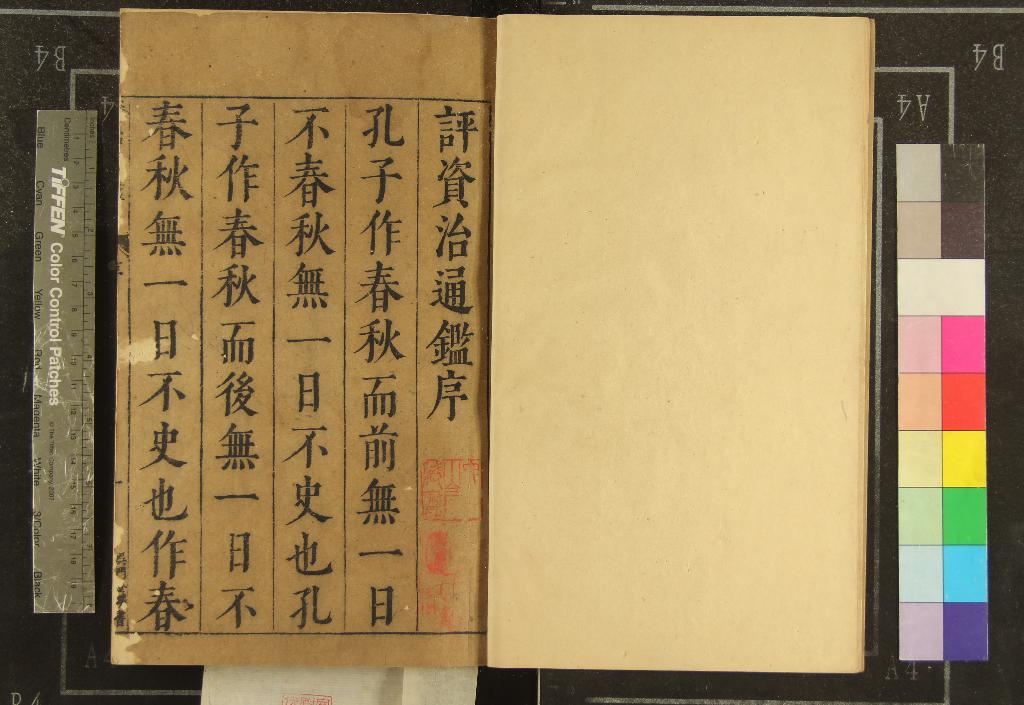 評資治通鑑序
孔子作春秋而前無一日
不春秋無一日不史也孔
子作春秋而後無一日不
春秋無一日不史也作春
B4
B4
A4
Inches
Centimetres
TIFFEN Color Control Patches
© The Tiffen Company, 2007
Blue
Cyan
Green
Yellow
Red
Magenta
White
3/Color
Black
A4
B4